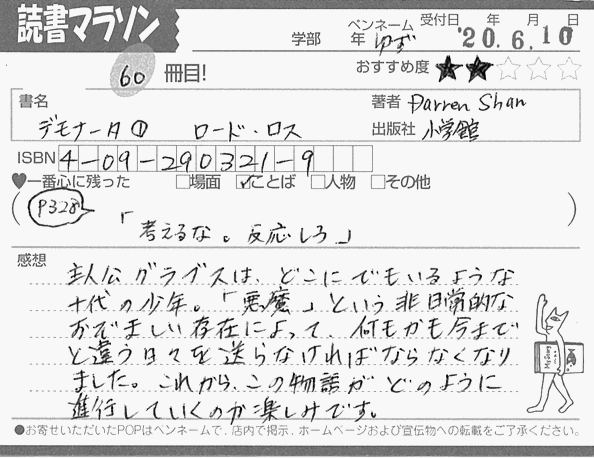 読書マラソン
学部 年 ペンネーム ゆず 受付日 年 月 日
'20.6.10
60 冊目! おすすめ度 ★★☆☆☆
書名 著者 Darren Shan
デモナータ① ロード・ロス 出版社 小学館
ISBN 4-09-290321-9
♥一番心に残った □場面 ☑ことば □人物 □その他
P328
「考えるな。反応しろ」
感想
主人公グラブスは、どこにでもいるような
十代の少年。「悪魔」という非日常的な
おぞましい存在によって、何もかも今まで
と違う日々を送らなければならなくなり
ました。これから、この物語がどのように
進行していくのか楽しみです。
●お寄せいただいたPOPはペンネームで、店内で掲示、ホームページおよび宣伝物への転載をご了承ください。